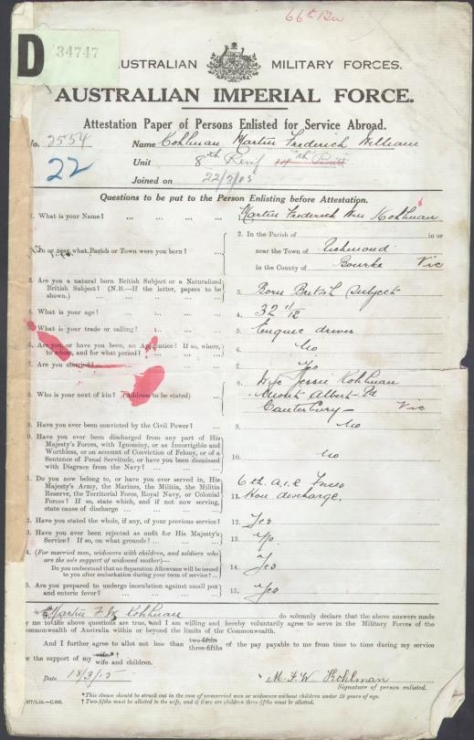 66th Bn
D
34747
AUSTRALIAN MILITARY FORCES.
AUSTRALIAN IMPERIAL FORCE.
Attestation Paper of Persons Enlisted for Service Abroad.
No. 2554 Name Cohlman Martin Frederick William
22 Unit 8th Reinf
Joined on 22/3/15
Questions to be put to the Person Enlisting before Attestation.
1. What is your Name? ... 1. Martin Frederick Wm Kohlman
2. In or near what Parish or Town were you born? ... 2. In the Parish of in or
near the Town of Richmond
in the County of Bourke Vic
3. Are you a natural born British Subject or a Naturalized
British Subject? (N.B.—If the latter, papers to be
shown.) 3. Born British Subject
4. What is your age? ... 4. 32 1/12
5. What is your trade or calling? ... 5. Engine driver
6. Are you or have you been, an Apprentice? If so, where,
to whom, and for what period? 6. No
7. Are you married? ... 7. Yes
8. Who is your next of kin? (Address to be stated) 8. Wife Jessie Kohlman
Mont Albert Rd
Canterbury Vic
9. Have you ever been convicted by the Civil Power? 9. No
10. Have you ever been discharged from any part of His
Majesty's Forces, with Ignominy, or as Incorrigible and
Worthless, or on account of Conviction of Felony, or of a
Sentence of Penal Servitude, or have you been dismissed
with Disgrace from the Navy? 10. No
11. Do you now belong to, or have you ever served in, His
Majesty's Army, the Marines, the Militia, the Militia
Reserve, the Territorial Force, Royal Navy, or Colonial
Forces? If so, state which, and if not now serving,
state cause of discharge 11. 6th A.I.F. discharge.
12. Have you stated the whole, if any, of your previous service? 12. Yes
13. Have you ever been rejected as unfit for His Majesty's
Service? If so, on what grounds? 13. No
14. (For married men, widowers with children, and soldiers who
are the sole support of widowed mother)—
Do you understand that no Separation Allowance will be issued
to you after embarkation during your term of service? 14. Yes
15. Are you prepared to undergo inoculation against small pox
and enteric fever? 15. Yes
I, Martin F. W. Kohlman do solemnly declare that the above answers made
by me to the above questions are true, and I am willing and hereby voluntarily agree to serve in the Military Forces of the
Commonwealth of Australia within or beyond the limits of the Commonwealth.
And I further agree to allot not less than two-fifths three-fifths of the pay payable to me from time to time during my service
for the support of my wife wife and children.
Date 18/3/15 M. F. W. Kohlman
Signature of person enlisted.
*This clause should be struck out in the case of unmarried men or widowers without children under 18 years of age.
† Two-fifths must be allotted to the wife, and if there are children three-fifths must be allotted.